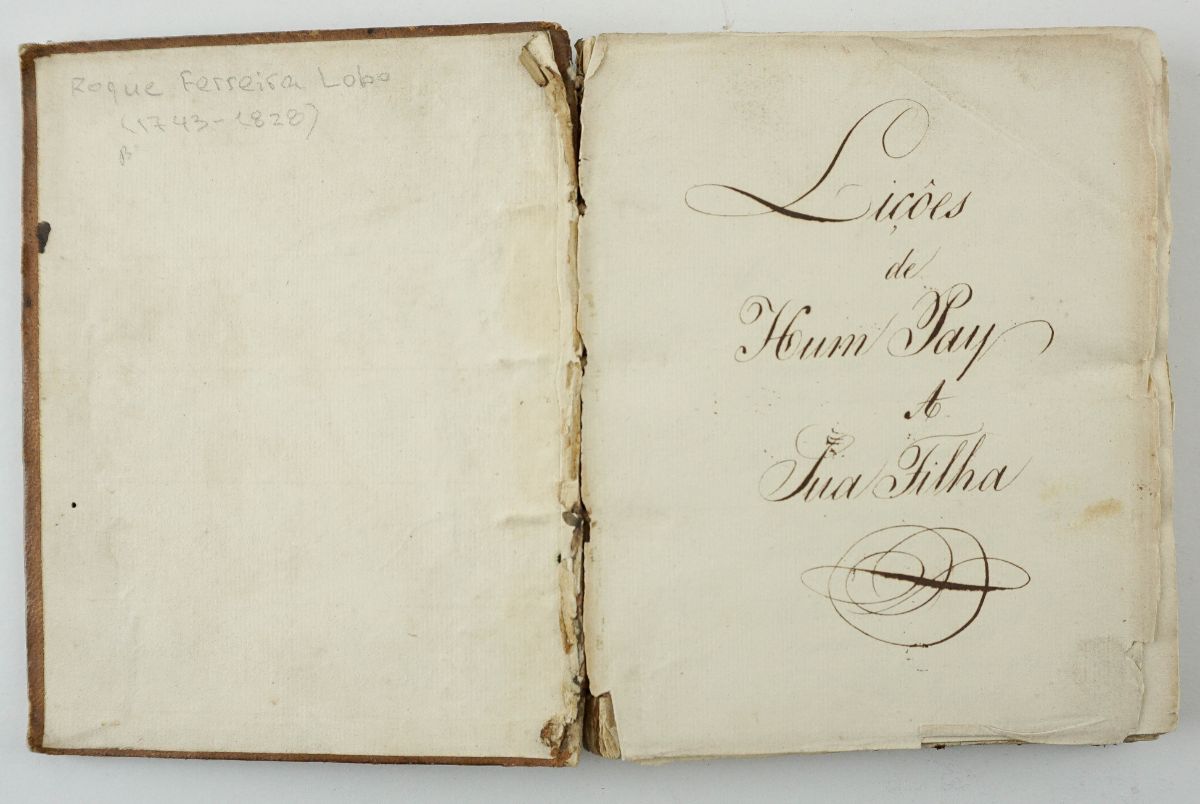 Roque Ferreira Lobo
(1743-1828)
Liçôes
de
Hum Pay
A
Sua Filha